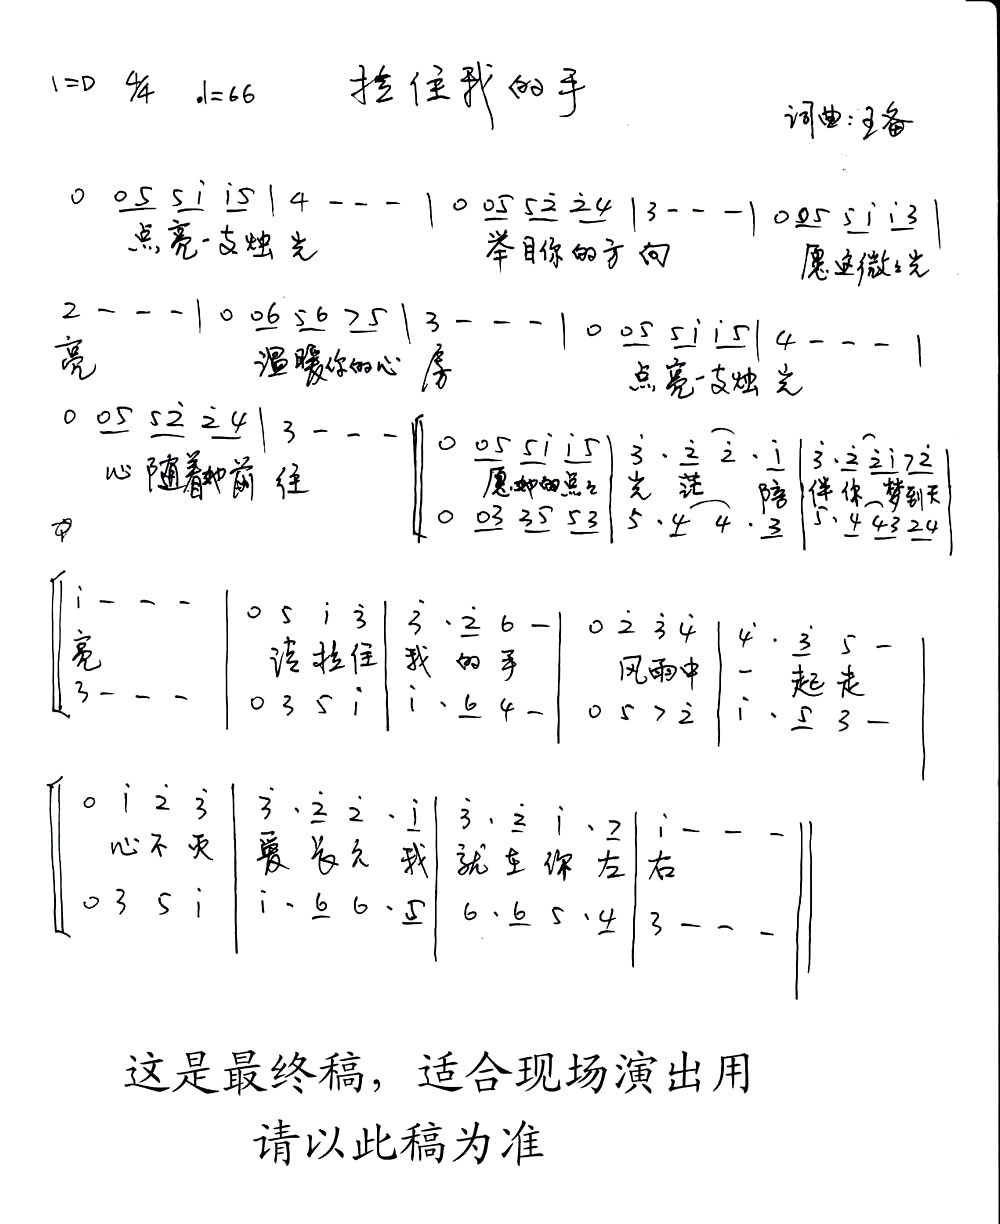 1=D 4/4 ♩=66 拉住我的手
词曲:王备
0 05 5i̇ i̇5 | 4 - - - | 0 05 52̇ 2̇4 | 3 - - - | 0 05 5i̇ i̇3 |
点亮一支烛光 举目你的方向 愿这微々光
2 - - - | 0 06 56 75 | 3 - - - | 0 05 5i̇ i̇5 | 4 - - - |
亮 温暖你的心房 点亮一支烛光
0 05 52̇ 2̇4 | 3 - - - 0 05 5i̇ i̇5 | 3̇ · 2̇ 2̇ · i̇ | 3̇ · 2̇ 2̇i̇ 72̇ |
心随着她前往 愿她的点々光芒 陪伴你 梦到天
0 03 35 53 | 5 · 4 4 · 3 | 5 · 4 43 24 |
i̇ - - - | 0 5 i̇ 3̇ | 3̇ · 2̇ 6 - | 0 2̇ 3̇ 4̇ | 4̇ · 3̇ 5 - |
亮 请拉住我的手 风雨中一起走
3 - - - | 0 3 5 i̇ | i̇ · 6 4 - | 0 5 7 2̇ | i̇ · 5 3 - |
0 i̇ 2̇ 3̇ | 3̇ · 2̇ 2̇ · i̇ | 3̇ · 2̇ i̇ · 7 | i̇ - - - ||
心不灭 爱长久 我就在你左右
0 3 5 i̇ | i̇ · 6 6 · 5 | 6 · 6 5 · 4 | 3 - - - ||
这是最终稿，适合现场演出用
请以此稿为准